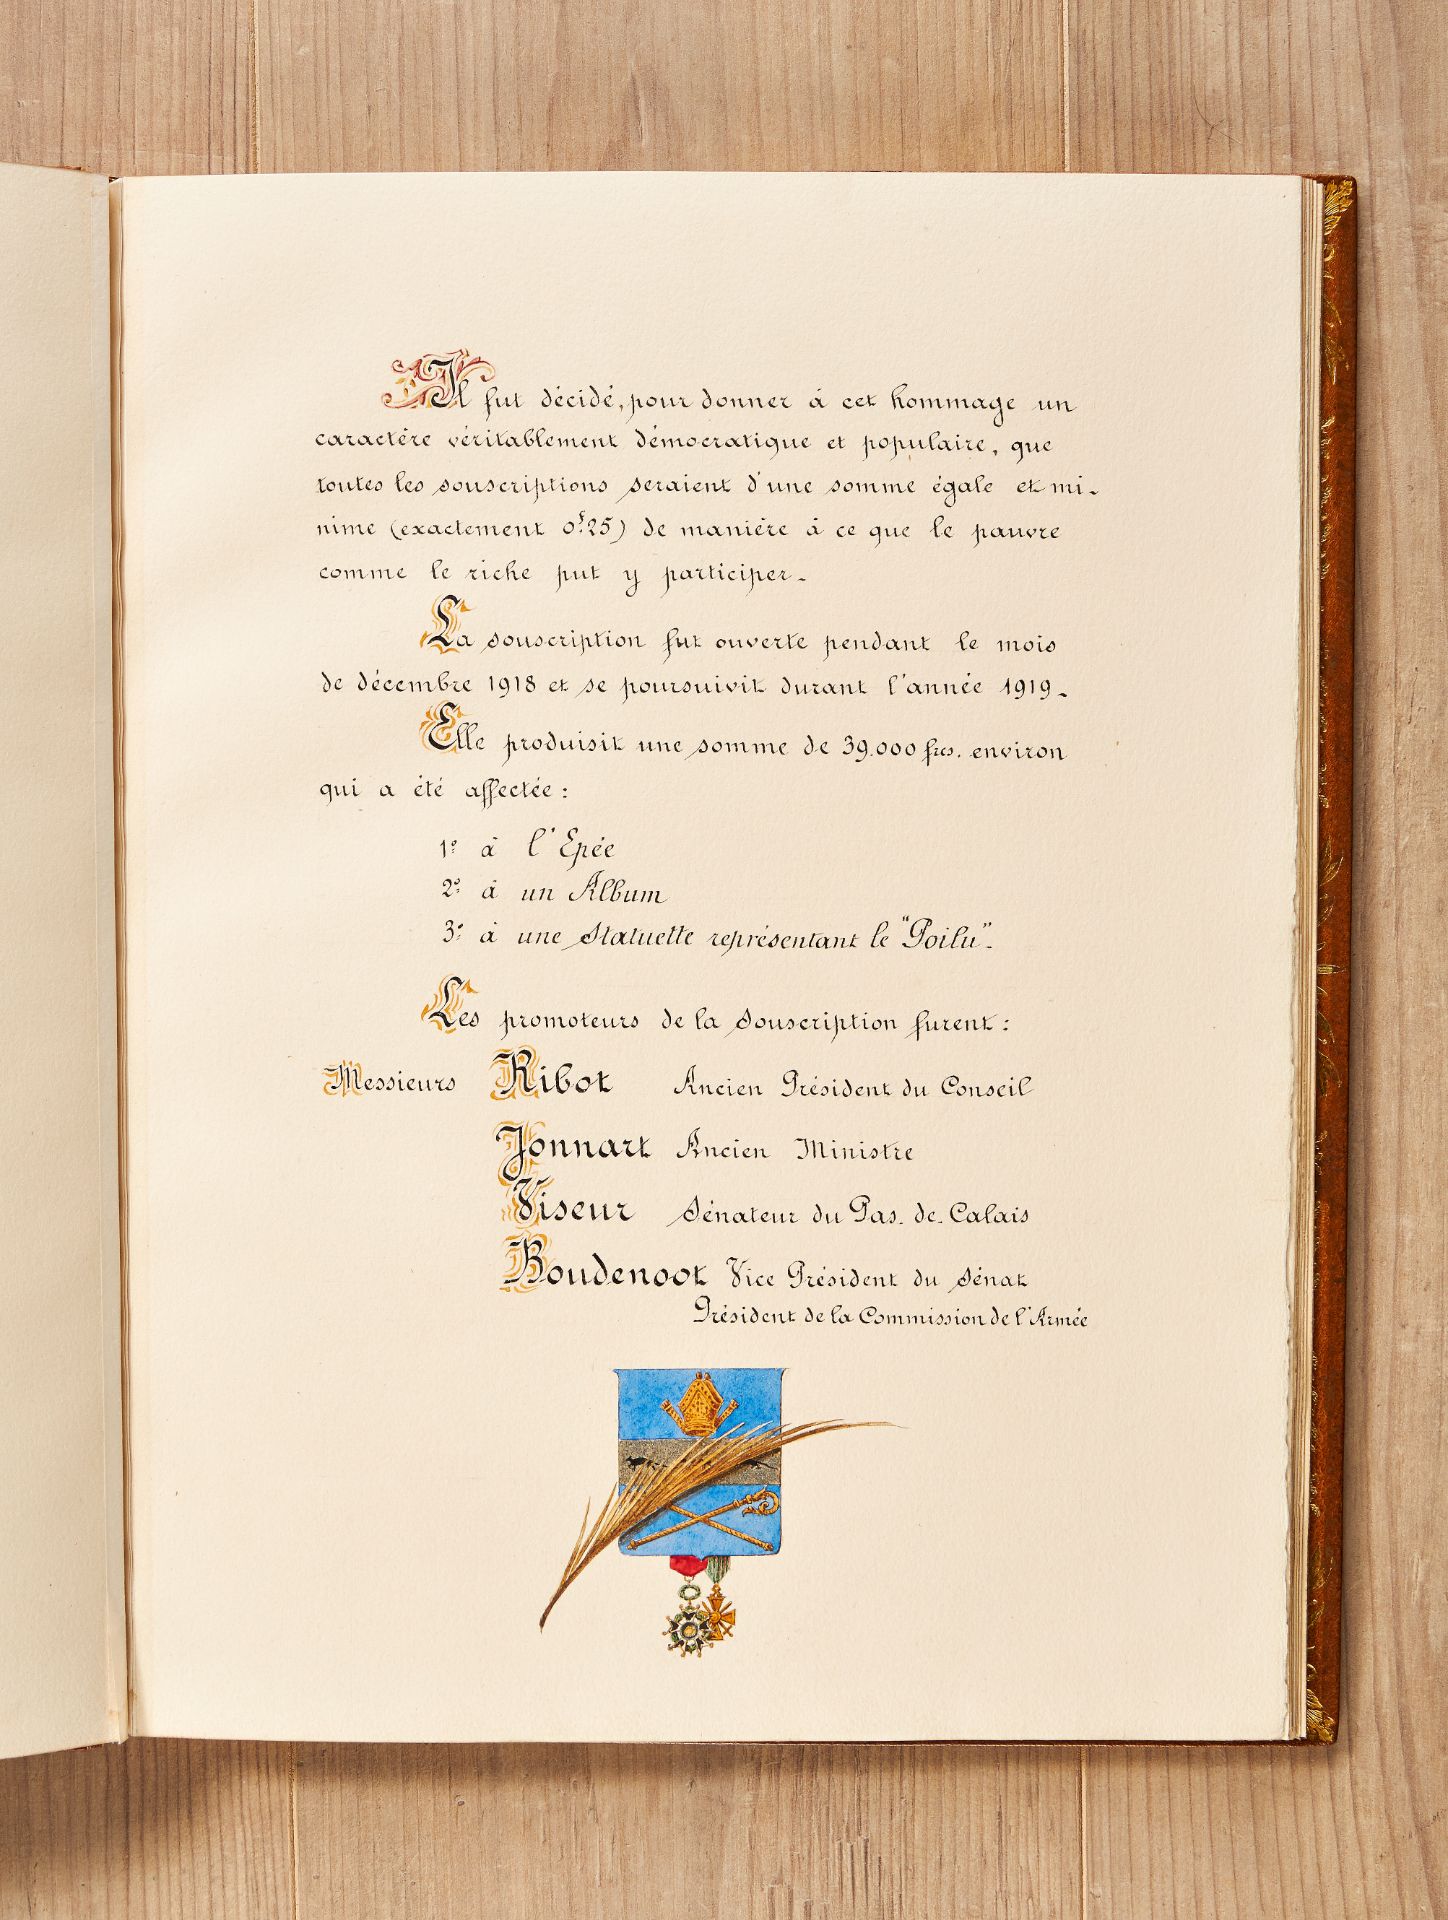 Il fut décidé, pour donner à cet hommage un
caractère véritablement démocratique et populaire, que
toutes les souscriptions seraient d'une somme égale et mi-
nime (exactement 0f.25) de manière à ce que le pauvre
comme le riche put y participer.
La souscription fut ouverte pendant le mois
de décembre 1918 et se poursuivit durant l'année 1919.
Elle produisit une somme de 39.000 frcs. environ
qui a été affectée :
1° à l'Epée
2° à un Album
3° à une Statuette représentant le "Poilu".
Les promoteurs de la Souscription furent :
Messieurs Ribot Ancien Président du Conseil
Jonnart Ancien Ministre
Viseur Sénateur du Pas-de-Calais
Boudenoot Vice Président du Sénat
Président de la Commission de l'Armée